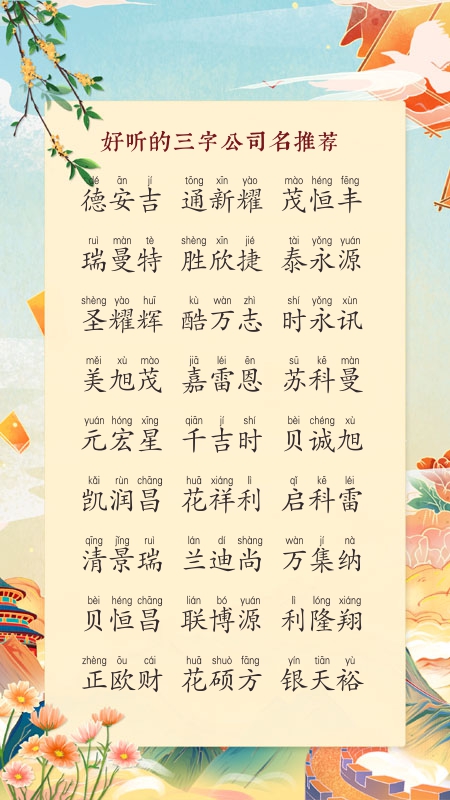 好听的三字公司名推荐
dé ān jí tōng xīn yào mào héng fēng
德安吉 通新耀 茂恒丰
ruì màn tè shèng xīn jié tài yǒng yuán
瑞曼特 胜欣捷 泰永源
shèng yào huī kù wàn zhì shí yǒng xùn
圣耀辉 酷万志 时永讯
měi xù mào jiā léi ēn sū kē màn
美旭茂 嘉雷恩 苏科曼
yuán hóng xīng qiān jí shí bèi chéng xù
元宏星 千吉时 贝诚旭
kǎi rùn chāng huā xiáng lì qǐ kē léi
凯润昌 花祥利 启科雷
qīng jǐng ruì lán dí shàng wàn jí nà
清景瑞 兰迪尚 万集纳
bèi héng chāng lián bó yuán lì lóng xiáng
贝恒昌 联博源 利隆翔
zhèng ōu cái huā shuò fāng yín tiān yù
正欧财 花硕方 银天裕